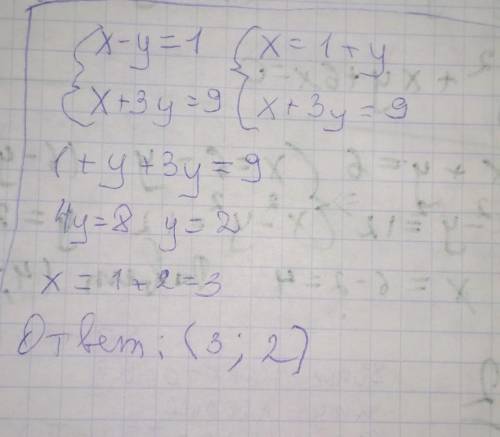 {x-y=1 {x=1+y
{x+3y=9 {x+3y=9
1+y+3y=9
4y=8 y=2
x=1+2=3
Ответ: (3; 2)